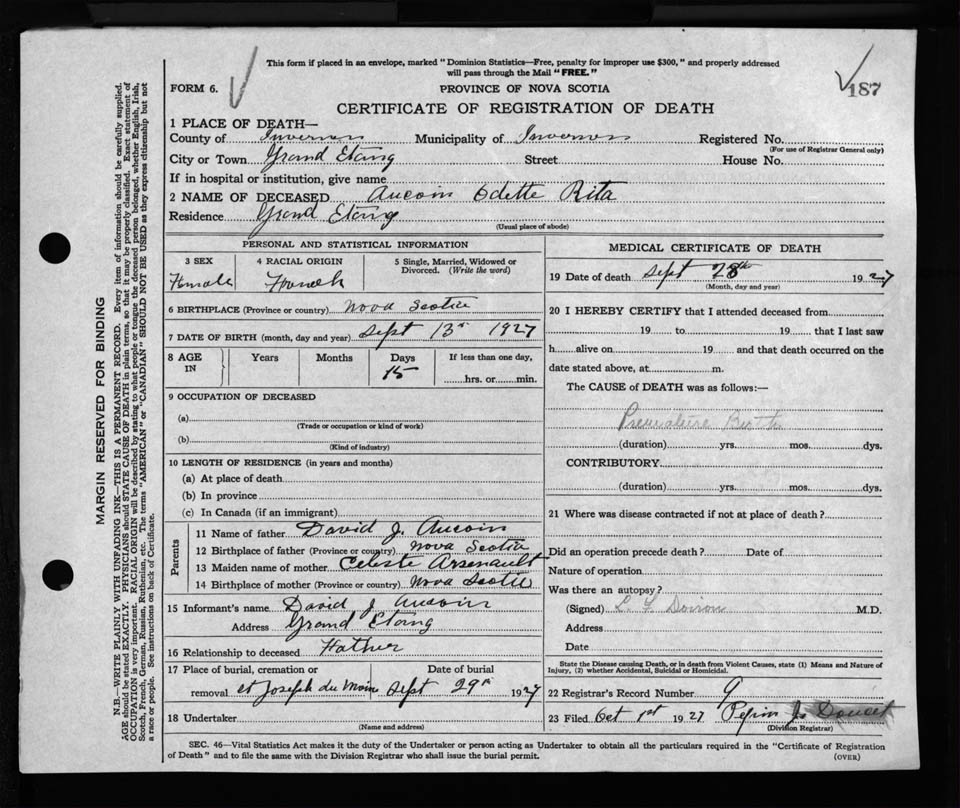 This form if placed in an envelope, marked "Dominion Statistics—Free, penalty for improper use $300," and properly addressed
will pass through the Mail "FREE."
FORM 6.
PROVINCE OF NOVA SCOTIA
187
CERTIFICATE OF REGISTRATION OF DEATH
1 PLACE OF DEATH—
County of Inverness Municipality of Inverness Registered No.
(For use of Registrar General only)
City or Town Grand Etang Street House No.
If in hospital or institution, give name
2 NAME OF DECEASED Aucoin Odette Rita
Residence Grand Etang
(Usual place of abode)
PERSONAL AND STATISTICAL INFORMATION
3 SEX Female
4 RACIAL ORIGIN French
5 Single, Married, Widowed or Divorced. (Write the word)
6 BIRTHPLACE (Province or country) Nova Scotia
7 DATE OF BIRTH (month, day and year) Sept 13th 1927
8 AGE IN Years Months Days 15 If less than one day, hrs. or min.
9 OCCUPATION OF DECEASED
(a)
(Trade or occupation or kind of work)
(b)
(Kind of industry)
10 LENGTH OF RESIDENCE (in years and months)
(a) At place of death
(b) In province
(c) In Canada (if an immigrant)
Parents
11 Name of father David J. Aucoin
12 Birthplace of father (Province or country) Nova Scotia
13 Maiden name of mother Celeste Arsenault
14 Birthplace of mother (Province or country) Nova Scotia
15 Informant's name David J Aucoin
Address Grand Etang
16 Relationship to deceased Father
17 Place of burial, cremation or Date of burial
removal St Joseph du Moine Sept 29th 1927
18 Undertaker
(Name and address)
MEDICAL CERTIFICATE OF DEATH
19 Date of death Sept 28th 1927
(Month, day and year)
20 I HEREBY CERTIFY that I attended deceased from
19 to 19 that I last saw
h alive on 19 and that death occurred on the
date stated above, at m.
The CAUSE of DEATH was as follows:—
Premature Birth
(duration) yrs. mos. dys.
CONTRIBUTORY
(duration) yrs. mos. dys.
21 Where was disease contracted if not at place of death?
Did an operation precede death? Date of
Nature of operation
Was there an autopsy?
(Signed) L. F. Doiron M.D.
Address
Date
State the Disease causing Death, or in death from Violent Causes, state (1) Means and Nature of
Injury, (2) whether Accidental, Suicidal or Homicidal.
22 Registrar's Record Number 9
23 Filed Oct 1st 1927 Pepin J. Doucet
(Division Registrar)
SEC. 46—Vital Statistics Act makes it the duty of the Undertaker or person acting as Undertaker to obtain all the particulars required in the "Certificate of Registration
of Death" and to file the same with the Division Registrar who shall issue the burial permit.
(OVER)
MARGIN RESERVED FOR BINDING
N.B.—WRITE PLAINLY WITH UNFADING INK—THIS IS A PERMANENT RECORD. Every item of information should be carefully supplied.
AGE should be stated EXACTLY. PHYSICIANS should STATE CAUSE OF DEATH in plain terms, so that it may be properly classified. Exact statement of
OCCUPATION is very important. RACIAL ORIGIN will be described by stating to what people or tongue the deceased person belonged, whether English, Irish,
Scotch, French, German, Russian, Ruthenian, etc. The terms "AMERICAN" or "CANADIAN" SHOULD NOT BE USED as they express citizenship but not
a race or people. See instructions on back of Certificate.